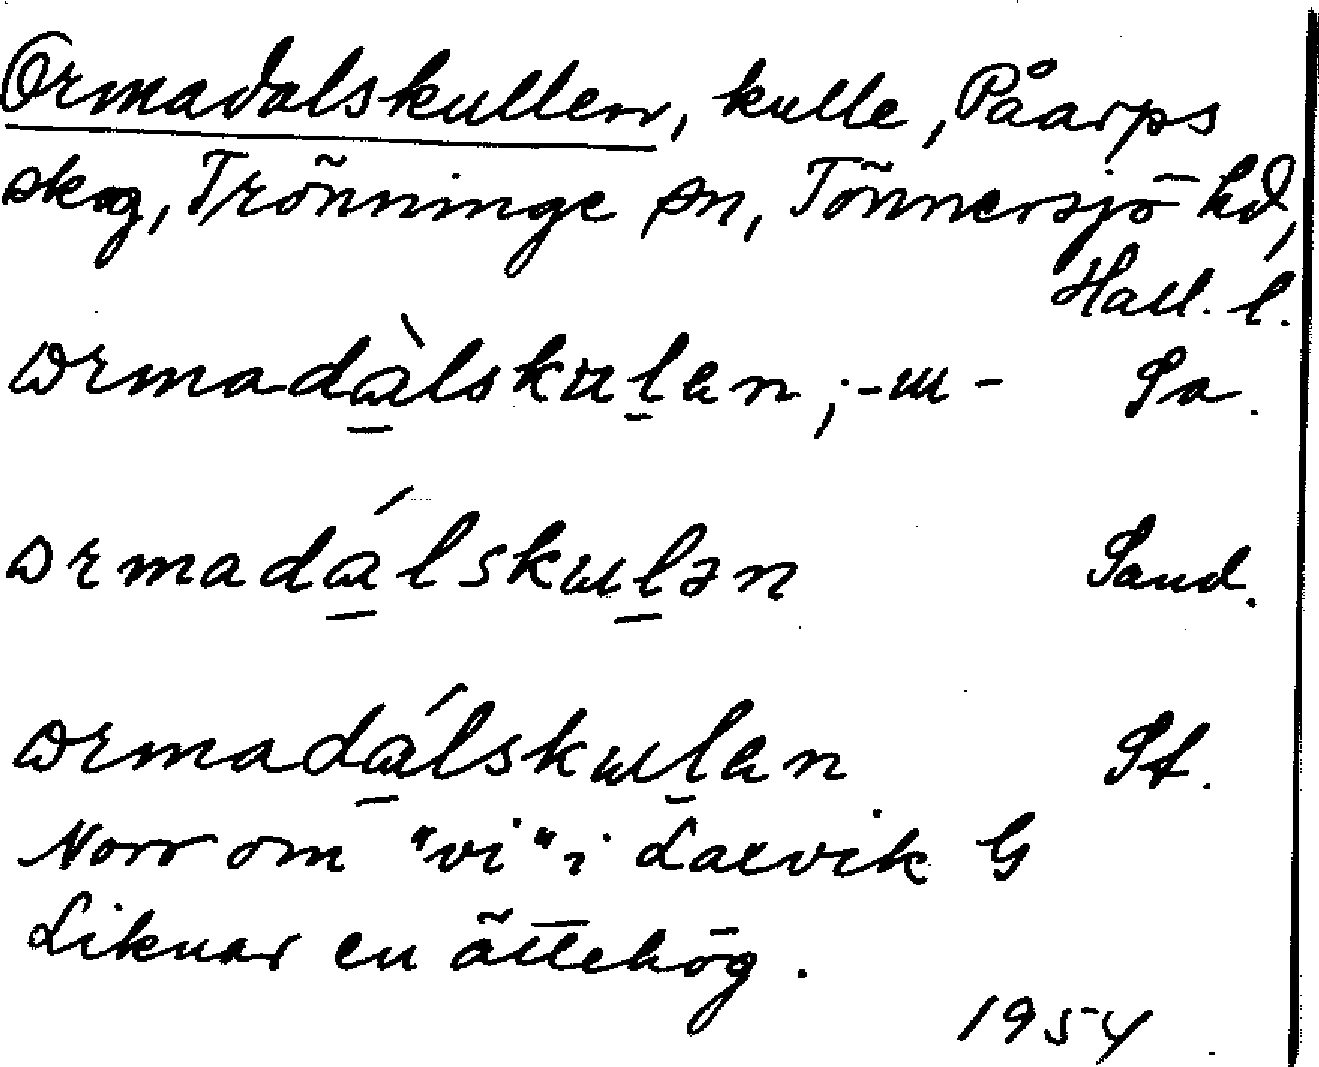 Ormadalskullen, kulle, Påarps
skog, Trönninge sn, Tönnersjö hd,
Hall. l.
ɷrmadàlskɯlen ; -ɯ- Sa.
ɷrmadálskɯlən Sand.
ɷrmadálskɯlen St.
Norr om "vi" i Laxvik G
Liknar en ättehög.
1954